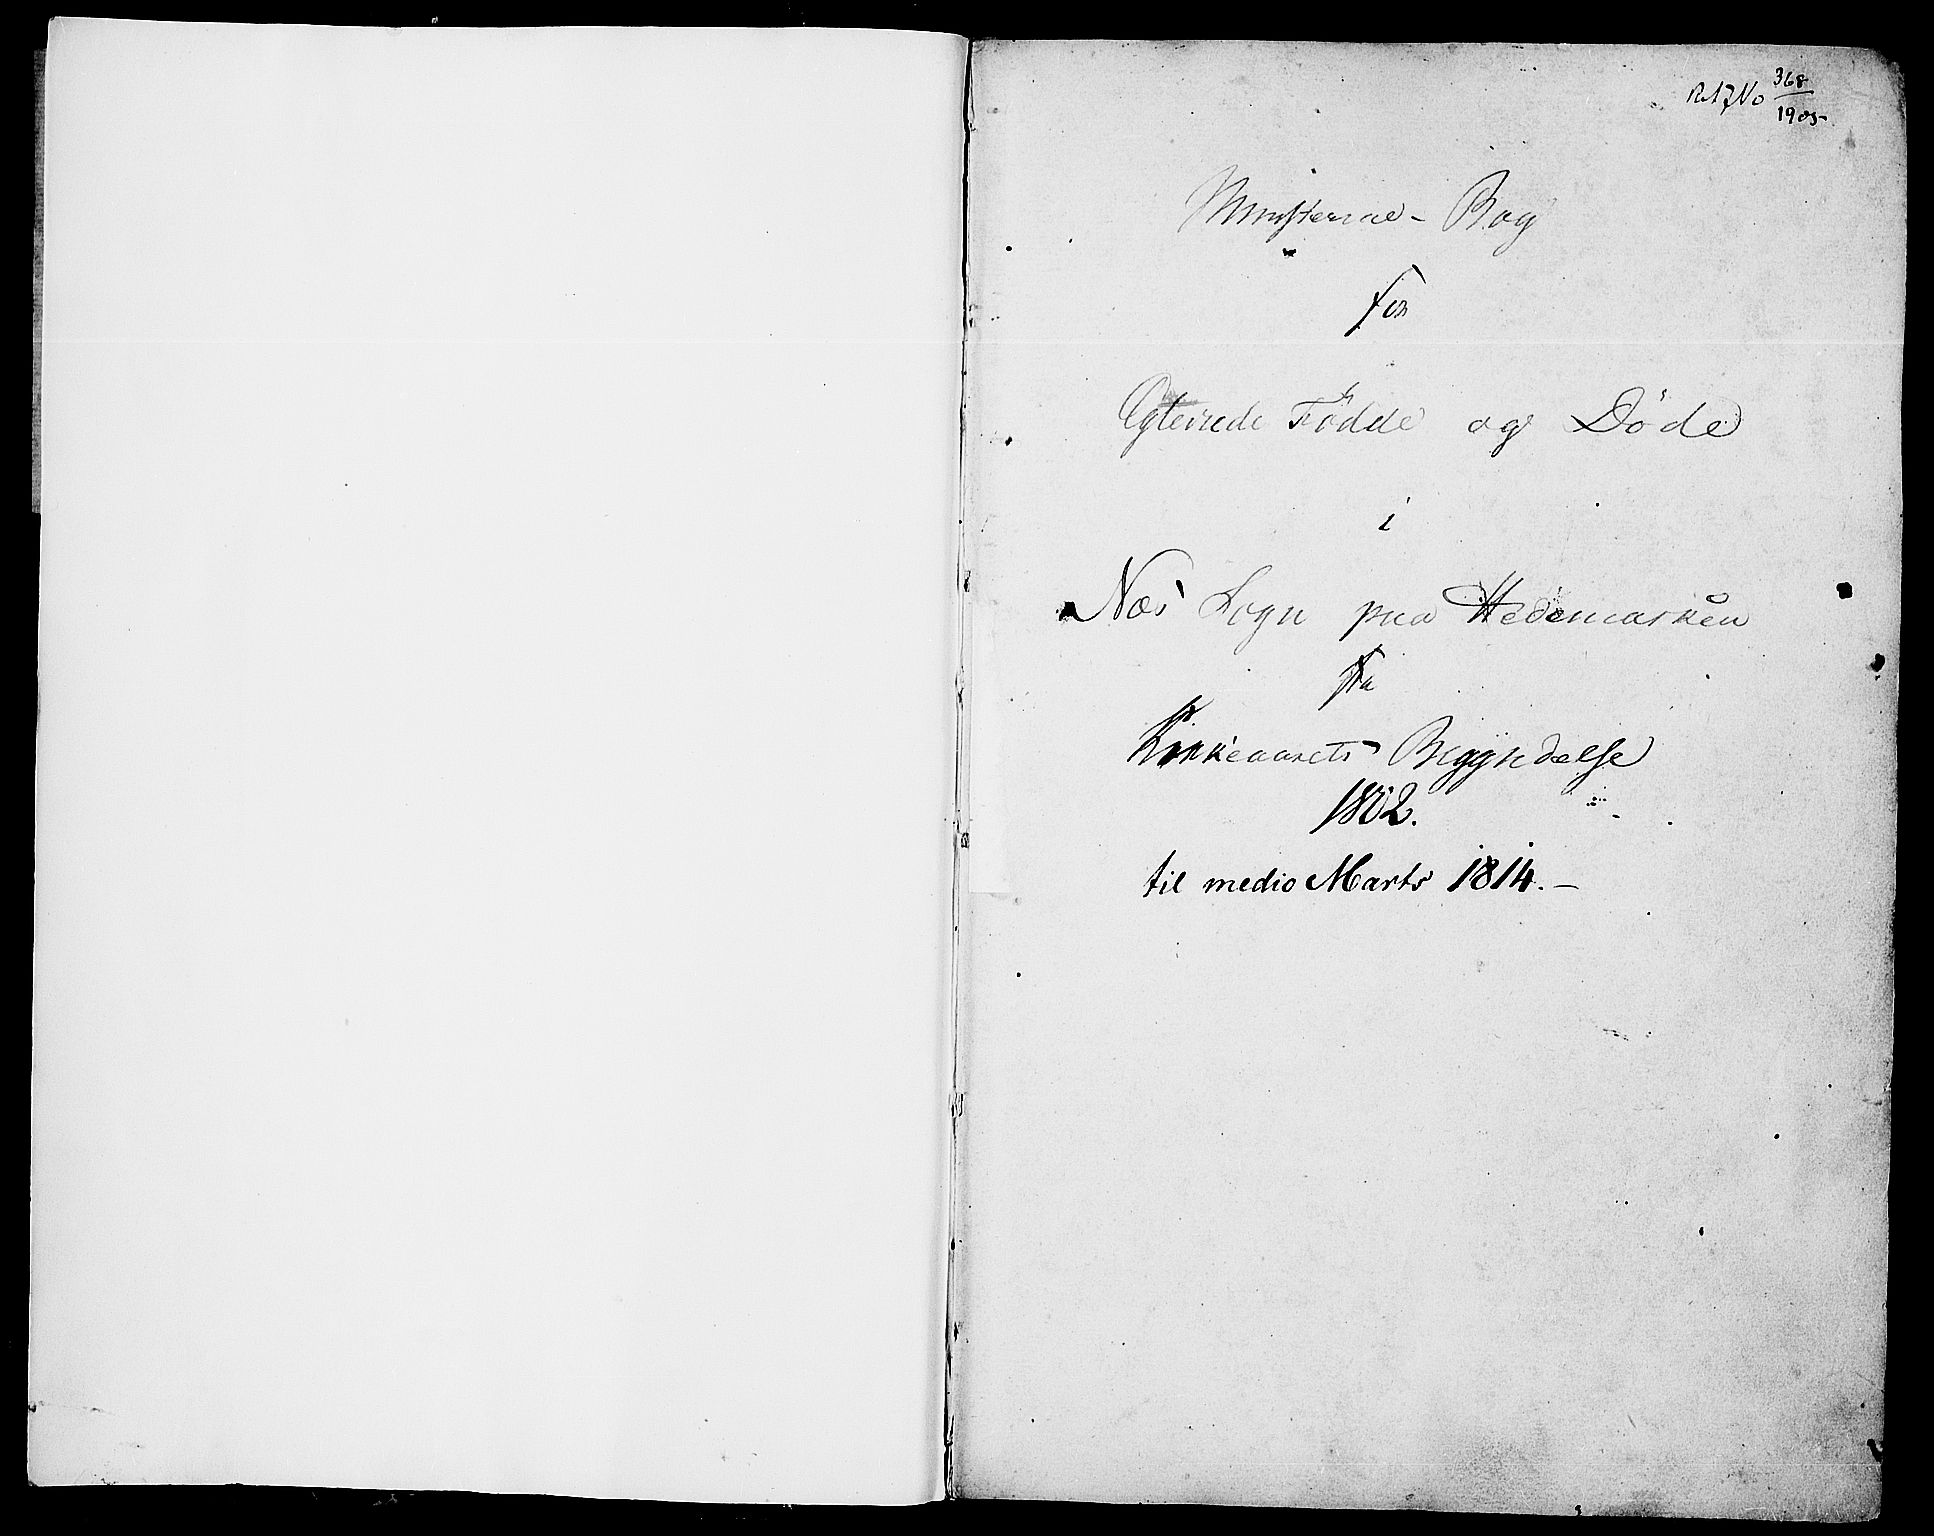 368
1905
Ministerial-Bog
for
Egteviede Födde og Döde
i
Næs Sogn paa Hedemarken
fra
Kirkeaarets Begyndelse
1802.
til medio Marts 1814. –